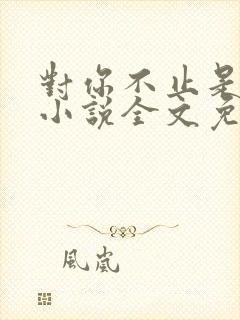 對你不止是
小說全文免
風嵐